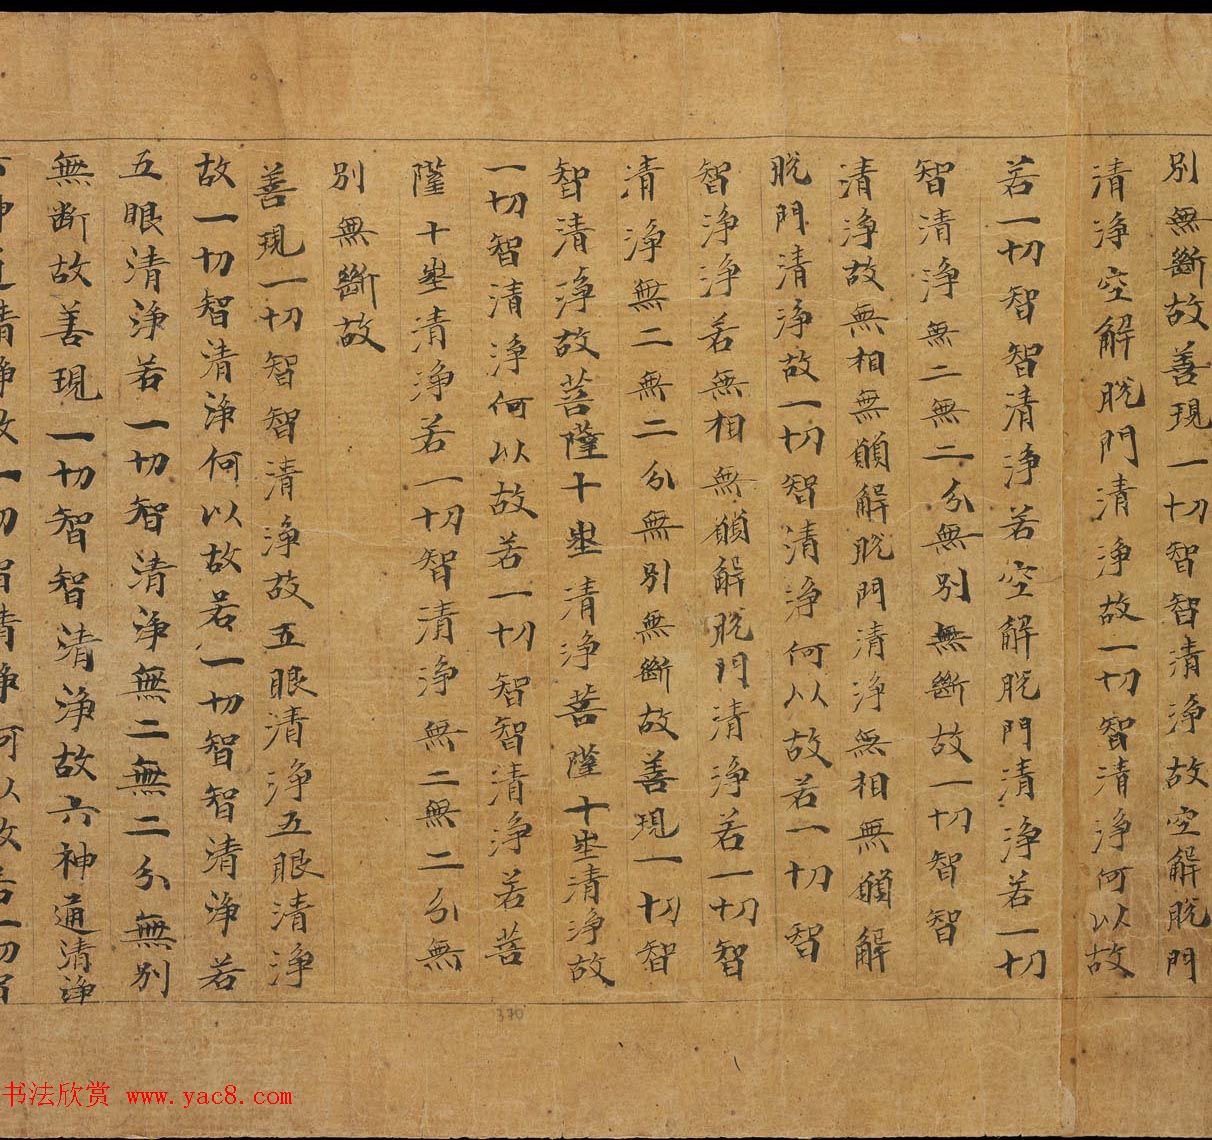 別無斷故善現一切智智清浄故空解脱門
清浄空解脱門清浄故一切智清浄何以故
若一切智智清浄若空解脱門清浄若一切
智清浄無二無二分無別無斷故一切智智
清浄故無相無願解脱門清浄無相無願解
脱門清浄故一切智清浄何以故若一切智
智浄浄若無相無願解脱門清浄若一切智
清浄無二無二分無別無斷故善現一切智
智清浄故菩薩十埊清浄菩薩十埊清浄故
一切智清浄何以故若一切智智清浄若菩
薩十埊清浄若一切智清浄無二無二分無
別無斷故
善現一切智智清浄故五眼清浄五眼清浄
故一切智清浄何以故若一切智智清浄若
五眼清浄若一切智清浄無二無二分無別
無斷故善現一切智智清浄故六神通清浄
神通清浄故一切智清浄何以故若一切智
370
书法欣赏 www.yac8.com